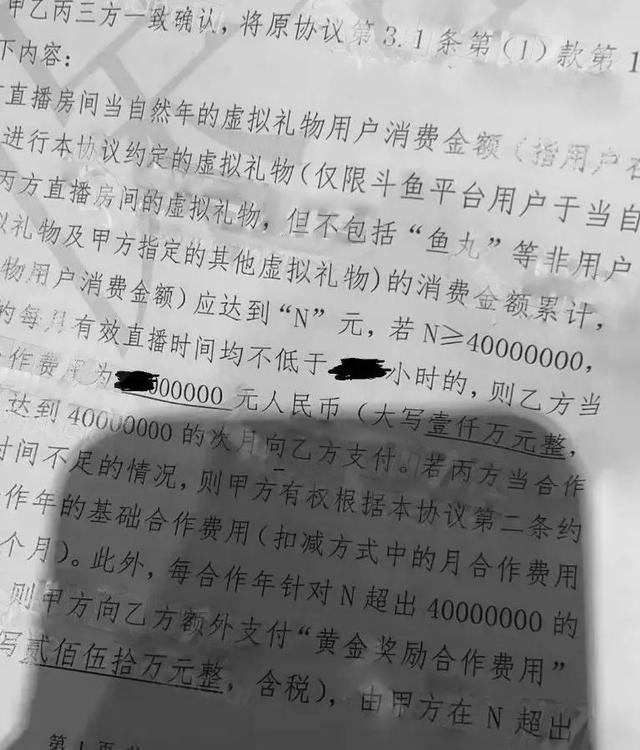 甲乙丙三方一致确认，将原协议第3.1条第(1)款第1
下内容：
直播房间当自然年的虚拟礼物用户消费金额（指用户在
进行本协议约定的虚拟礼物(仅限斗鱼平台用户于当自
丙方直播房间的虚拟礼物，但不包括“鱼丸”等非用户
礼物及甲方指定的其他虚拟礼物)的消费金额累计，
物用户消费金额）应达到“N”元，若N≥40000000，
的每月有效直播时间均不低于 小时的，则乙方当
作费用为 000000 元人民币（大写壹仟万元整，
达到40000000的次月向乙方支付。若丙方当合作
时间不足的情况，则甲方有权根据本协议第二条约
作年的基础合作费用(扣减方式中的月合作费用
个月)。此外，每合作年针对N超出40000000的
则甲方向乙方额外支付“黄金奖励合作费用”
写贰佰伍拾万元整，含税)，由甲方在N超出
第1页